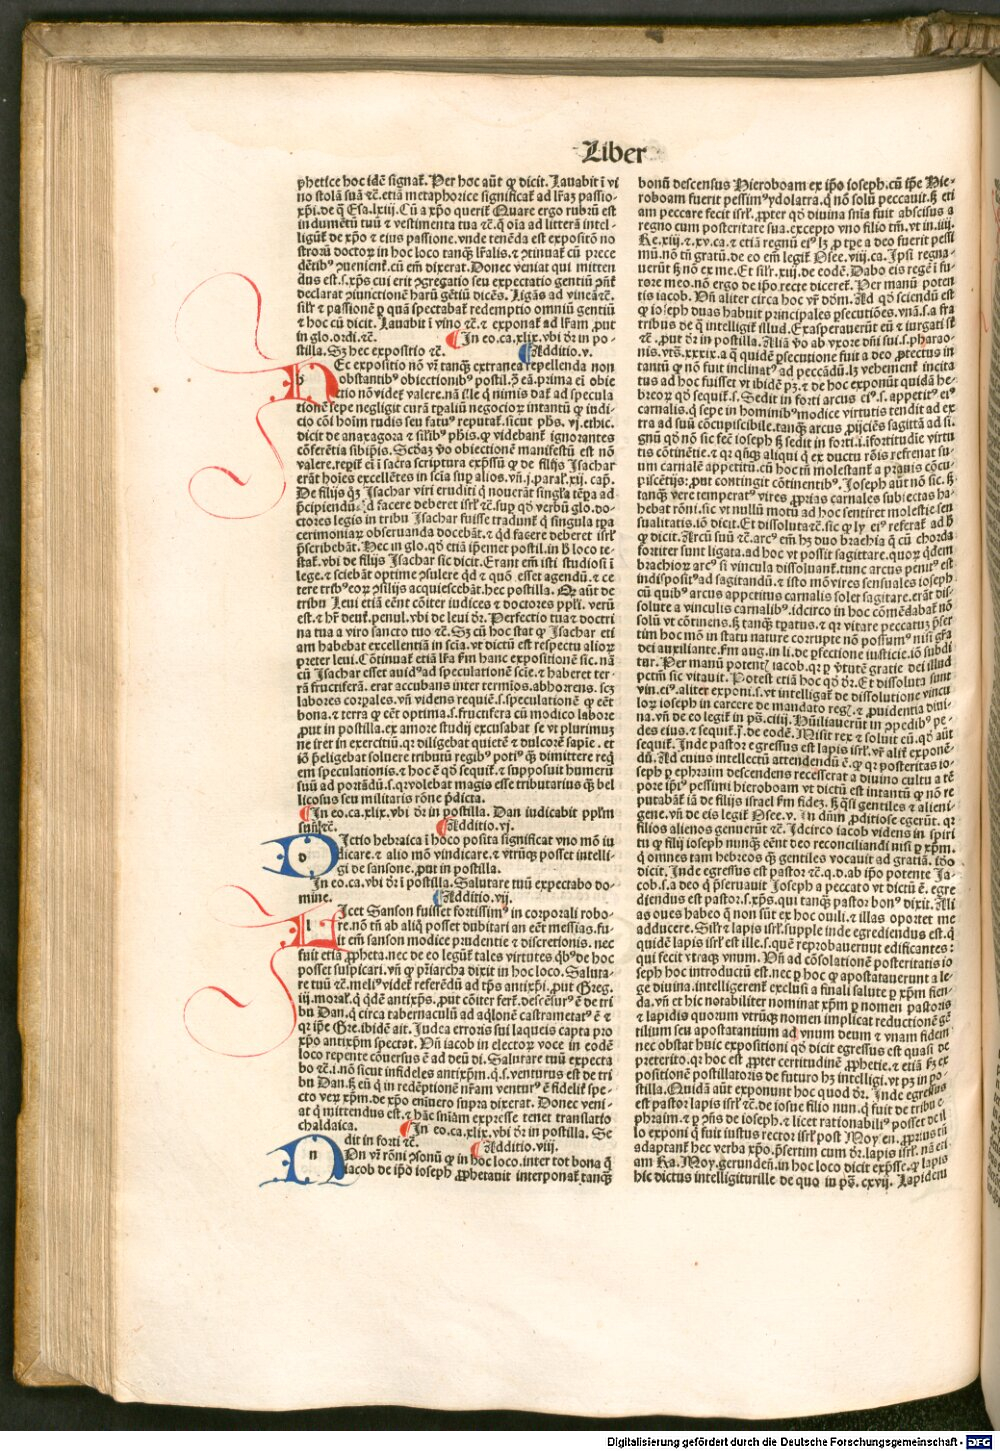 Liber
phetice hoc idē signat. Per hoc aūt qꝫ dicit. Lauabit ī vi
no stolā suā ⁊c̄. etiā metaphorice significat ad lr̄aꝫ passio-
xp̄i. de q̄ Esa. lxiij. Cū a xp̄o querit Quare ergo rubrū est
indumētū tuū ⁊ vestimenta tua ⁊c̄. q̄ oīa ad litterā intel-
ligūt de xp̄o ⁊ eius passione. vnde tenēda est expositō no
stroꝝ doctoꝝ in hoc loco tanq̄ꝫ lr̄alis. ⁊ ꝯtinuat cū prece
dētibꝰ ꝯuenient. cū em̄ dixerat. Donec veniat qui mitten
dus est. s. xp̄s cui erit ꝯgregatio seu expectatio gentiū
declarat ꝯiunctionē harū gētiū dicēs. Ligās ad vineā ⁊c̄.
silꝝ ⁊ passionē ꝑ quā spectabat redemptio omniū gentiū
⁊ hoc cū dicit. Lauabit ī vino ⁊c̄. ⁊ exponat ad lr̄am ꝓut
in glo. ordi. ⁊c̄. ¶ In eo. ca. xlix. vbi dr̄ in po-
stilla. Sꝫ hec expositio ⁊c̄. ¶ Additio. v.
h Ec expositio nō vr̄ tanq̄ꝫ extranea repellenda non
obstantibꝰ obiectionibꝰ postil. ꝯ eā. prima ei obie
ctio nō videt valere. nā ille q̄ nimis dat ad specula
tionē sepe negligit curā tꝑaliū negocioꝝ intantū ꝙ indi-
cio cōi hoīm rudis seu fatuꝰ reputat. sicut phs. vj. ethic.
dicit de anaxagora ⁊ silibꝰ phis. ꝙ videbant ignorantes
cōferētia sibiipis. Scdaꝫ vo obiectionē manifestū est nō
valere. repit ei ī sacra scriptura exp̄ssū ꝙ de filijs Isachar
erāt hoies excellētes in scīa suꝑ alios. vn̄. j. paral. xij. cap.
De filijs qꝫ Isachar viri eruditi q̄ nouerāt singla tēpa ad
p̄cipiendū qd facere deberet isrl ⁊c̄. suꝑ qd verbū glo. do-
ctores legis in tribu Isachar fuisse tradunt q̄ singula tꝑa
cerimoniaꝝ obseruanda docebāt. ⁊ qd facere deberet isrl
p̄scribebāt. Hec in glo. qd etiā ipemet postil. in h̄ loco te-
stat. vbi de filijs Isachar sic dicit. Erant em̄ isti studiosi ī
lege. ⁊ sciebāt optime ꝯsulere qd ⁊ quō esset agendū. ⁊ ce
tere tribꝰ eoꝝ ꝯsilijs acquiescebāt. hec postilla. Qꝫ aūt de
tribu Leui etiā eēnt cōiter iudices ⁊ doctores ppli. verū
est. ⁊ hr̄ deut. penul. vbi de leui dr̄. Perfectio tua ⁊ doctri
na tua a viro sancto tuo ⁊c̄. Sꝫ cū hoc stat ꝙ Isachar eti
am habebat excellentiā in scīa. vt dictū est respectu alioꝝ
preter leui. Cōtinuat etiā lr̄a fm hanc expositionē sic. nā
cū Isachar esset auidꝰ ad speculationē scīe. ⁊ haberet ter-
rā fructiferā. erat accubans inter termīos. abhorrens. scꝫ
labores corꝑales. vn̄ videns requiē. s. speculationē ꝙ eēt
bona. ⁊ terra ꝙ eēt optima. s. fructifera cū modico labore
ꝓut in postilla. ex amore studij excusabat se vt plurimuꝫ
ne iret in exercitiū. qꝛ diligebat quietē ⁊ dulcorē sapie. et
iō p̄eligebat soluere tributū regibꝰ potiꝰ q̄ꝫ dimittere req̄
em speculationis. ⁊ hoc ē qd sequit. ⁊ supposuit humerū
suū ad portādū. s. qꝛ volebat magis esse tributarius q̄ꝫ bel
licosus seu militaris rōne p̄dicta.
¶ In eo. ca. xlix. vbi dr̄ in postilla. Dan iudicabit pplm
suū ⁊c̄. ¶ Additio. vj.
D Ictio hebraica ī hoco posita significat vno mō iu
dicare. ⁊ alio mō vindicare. ⁊ vtrūqꝫ posset intelli-
gi de sansone. ꝓut in postilla.
In eo. ca. vbi dr̄ ī postilla. Salutare tuū expectabo do-
mine. ¶ Additio. vij.
L Icet Sanson fuisset fortissimꝰ in corporali robo-
re. nō tn̄ ab aliq̄ posset dubitari an eēt messias. fu-
it em̄ sanson modice prudentie ⁊ discretionis. nec
fuit etiā ꝓpheta. nec de eo legūt tales virtutes qbꝰ de hoc
posset suspicari. vn̄ ꝙ pr̄iarcha dixit in hoc loco. Saluta-
re tuū ⁊c̄. meliꝰ videt referēdū ad tꝑs antixp̄i. ꝓut Greg.
iij. moral. q̄ qdē antixp̄s. ꝓut cōiter fert. descēsurꝰ ē de tri
bu Dan. q̄ circa tabernaculū ad aqlonē castrametatꝰ ē ⁊
qꝛ ipe Gre. ibidē ait. Iudea erroris sui laqueis capta pro
xp̄o antixp̄m spectat. Vn̄ iacob in electoꝝ voce in eodē
loco repente cōuersus ē ad deū di. Salutare tuū expecta
bo ⁊c̄. i. nō sicut infideles antixp̄m. q. s. venturus est de tri
bu Dan. sꝫ eū q̄ in redēptionē nr̄am venturꝰ ē fidelit spe-
cto veꝝ xp̄m. de xp̄o enīuero supra dixerat. Donec veni-
at q̄ mittendus est. ⁊ hāc sniam expresse tenet translatio
chaldaica. ¶ In eo. ca. xlix. vbi dr̄ in postilla. Se
dit in forti ⁊c̄. ¶ Additio. viij.
N On vr̄ rōni ꝯsonū ꝙ in hoc loco. inter tot bona q̄
iacob de ipo ioseph ꝓphetauit interponat tanq̄ꝫ
bonū descensus Hieroboam ex ipo ioseph. cū ipe Hie-
roboam fuerit pessimꝰ ydolatra. q̄ nō solū peccauit. sꝫ eti
am peccare fecit isrl. ꝓpter qd diuina snia fuit abscisus a
regno cum posteritate sua. excepto vno filio tm̄. vt in. iiij.
Re. xiij. ⁊ xv. ca. ⁊ etiā regnū eiꝰ lꝫ ꝓ tꝑe a deo fuerit ꝑessi
mū. nō tn̄ gratū. de eo em̄ legit Osee. viij. ca. Ipsi regna-
uerūt sꝫ nō ex me. Et silꝝ. xiij. de eodē. Dabo eis regē ī fu-
rore meo. nō ergo de ipo. recte diceret. Per manū poten
tis iacob. Vn̄ aliter circa hoc vr̄ dōm. Ad qd sciendū est
ꝙ ioseph duas habuit principales ꝑsecutiōes. vnā. s. a fra
tribus de q̄ intelligit illud. Exasperauerūt eū ⁊ iurgati sūt
⁊c̄. ꝓut dr̄ in postilla. Aliā vo ab vxore dn̄i sui. s. pharao-
nis. vts. xxxix. a q̄ quidē ꝑsecutione fuit a deo ꝓtectus in
tantū ꝙ nō fuit inclinatꝰ ad peccādū. lꝫ vehement incita
tus ad hoc fuisset vt ibidē pꝫ. ⁊ de hoc exponūt quidā he-
breoꝝ qd sequit. s. Sedit in forti arcus eiꝰ. s. appetitꝰ eiꝰ
carnalis. q̄ sepe in hominibꝰ modice virtutis tendit ad ex
tra ad suū cōcupiscibile. tanq̄ꝫ arcus ꝓijciēs sagittā ad si-
gnū qd nō sic fec̄ ioseph sꝫ sedit in forti. i. ī fortitudīe virtu
tis cōtinētie. ⁊ qꝛ qn̄qꝫ aliqui q̄ ex ductu rōis refrenāt su-
um carnalē appetitū. cū hoc tn̄ molestant a prauis cōcu-
piscētijs: ꝓut contingit cōtinentibꝰ. Ioseph aūt nō sic. sꝫ
tanq̄ꝫ vere temperatꝰ vires ꝓprias carnales subiectas ha-
hebat rōni. sic vt nullū motū ad hoc sentiret molestie sen
sualitatis. iō dicit. Et dissoluta ⁊c̄. sic ꝙ ly eiꝰ referat ad h̄
ꝙ dicit. Arcū suū ⁊c̄. arcꝰ em̄ hꝫ duo brachia q̄ cū chorda
fortiter sunt ligata. ad hoc vt possit sagittare. quoꝝ qdem
brachioꝝ arcꝰ si vincula dissoluant. tunc arcus penitꝰ est
indispositꝰ ad sagitandū. ⁊ isto mō vires sensuales ioseph
cū quibꝰ arcus appetitus carnalis solet sagitare. erāt dis-
solute a vinculis carnalibꝰ. idcirco in hoc cōmēdabat nō
solū vt cōtinens. sꝫ tanq̄ꝫ tꝑatus. ⁊ qꝛ vitare peccatuꝫ p̄ser
tim hoc mō in statu nature corrupte nō possumꝰ nisi gr̄a
dei auxiliante. fm aug. in li. de ꝑfectione iusticie. iō subdi
tur. Per manū potentꝭ iacob. qꝛ ꝑ v̄tutē gratie dei illud
pctm sic vitauit. Potest etiā hoc qd dr̄. Et dissoluta sunt
vin. eiꝰ. aliter exponi. s. vt intelligat de dissolutione vincu
loꝝ ioseph in carcere de mandato regꝭ. ⁊ ꝓuidentia diui-
na. vn̄ de eo legit in ps̄. ciiij. Hūiliauerūt in ꝯpedibꝰ pe-
des eius. ⁊ sequit. j. de eodē. Misit rex ⁊ soluit eū. qd aūt
sequit. Inde pastor egressus est lapis isrl. vr̄ alit exponē-
dū. Ad cuius intellectū attendendū ē. ꝙ qꝛ posteritas io-
seph ꝑ ephraim descendens recesserat a diuino cultu a tē
pore ipiꝰ pessimi hieroboam vt dictū est intantū ꝙ nō re
putabāt iā de filijs israel fm fidez. sꝫ qsi gentiles ⁊ alieni-
gene. vn̄ de eis legit Osee. v. In dūm ꝓditiose egerūt. qꝛ
filios alienos genuerūt ⁊c̄. Idcirco iacob videns in spiri
tu ꝙ filij ioseph nunq̄ꝫ eēnt deo reconciliandi nisi ꝑ xp̄m.
q̄ omnes tam hebreos q̄ꝫ gentiles vocauit ad gratiā. iđo
dicit. Inde egressus est pastor ⁊c̄. q. d. ab ipo potente Ia-
cob. s. a deo q̄ p̄seruauit Ioseph a peccato vt dictū ē. egre
diendus est pastor. s. xp̄s. qui tanq̄ꝫ pastor bonꝰ dixit. Ali
as oues habeo q̄ non sūt ex hoc ouili. ⁊ illas oportet me
adducere. Silꝝ ⁊ lapis isrl. supple inde egrediendus est. q̄
quidē lapis isrl est ille. s. quē reprobauerunt edificantes:
qui fecit vtraqꝫ vnum. Vn̄ ad cōsolationē posteritatis io
seph hoc introductū est. nec ꝑ hoc ꝙ apostatauerunt a le-
ge diuina. intelligerent exclusi a finali salute ꝑ xp̄m fien-
da. vn̄ et hic notabiliter nominat xp̄m ꝑ nomen pastoris
⁊ lapidis quorum vtrūqꝫ nomen implicat reductionē gē
tilium seu apostatantium ad vnum deum ⁊ vnam fidem
nec obstat huic expositioni qd dicit egressus est quasi de
preterito. qꝛ hoc est ꝓpter certitudinē ꝓphetie. ⁊ etiā sꝫ ex
positionē postillatoris de futuro hꝫ intelligi. vt pꝫ in po-
stilla. Quidā aūt exponunt hoc quod dr̄. Inde egressus
est pastor lapis isrl ⁊c̄. de iosue filio nun. q̄ fuit de tribu e-
phraim. ⁊ ꝑ ꝯn̄s de ioseph. ⁊ licet rationabiliꝰ posset de il
lo exponi q̄ fuit iustus rector isrl post Moysen. ꝓprius tn̄
adaptant hec verba xp̄o. p̄sertim cum dr̄. lapis isrl. nā eti
am Ra. Moy. gerunden̄. in hoc loco dicit exp̄sse. ꝙ lapis
hic dictus intelligitur ille de quo in ps̄. cxvij. Lapidem
Digitalisierung gefördert durch die Deutsche Forschungsgemeinschaft - DFG